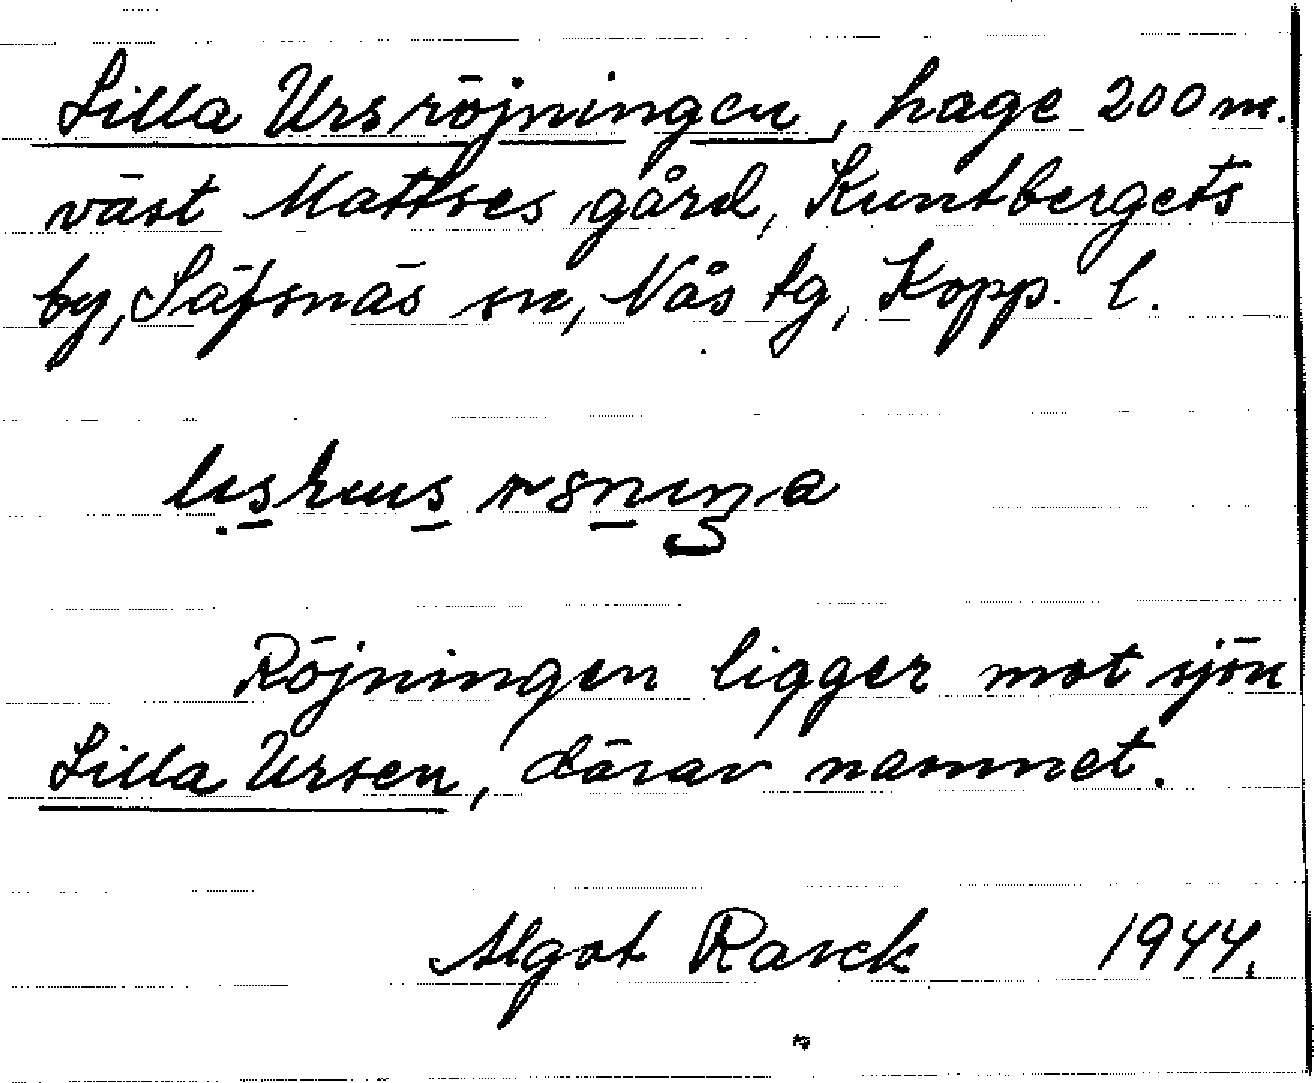 Lilla Ursröjningen, hage 200 m.
väst Mattses gård, Kuntbergets
by, Säfsnäs sn, Nås tg, Kopp. l.
Röjningen ligger mot sjön
Lilla Ursen, därav namnet.
Algot Rasck 1944.